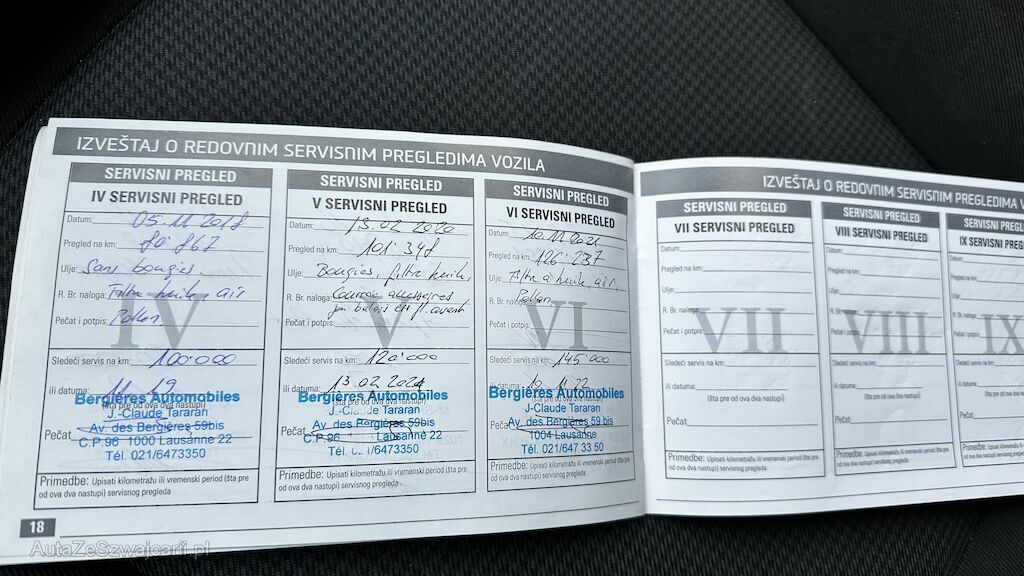 IZVEŠTAJ O REDOVNIM SERVISNIM PREGLEDIMA VOZILA
SERVISNI PREGLED
IV SERVISNI PREGLED
Datum: 05.11.2018
Pregled na km: 80'867
Ulje: Sans bougies.
R. Br. naloga: Filtre huile air
Pečat i potpis: Pollen,
IV
Sledeći servis na km: 100'000
ili datuma: 11.19
(šta pre od ova dva nastupi)
Bergières Automobiles
J.-Claude Tararan
Av. des Bergières 59bis
Pečat
C.P. 96 1000 Lausanne 22
Tél. 021/6473350
Primedbe: Upisati kilometražu ili vremenski period (šta pre
od ova dva nastupi) servisnog pregleda
SERVISNI PREGLED
V SERVISNI PREGLED
Datum: 13.02 2020
Pregled na km: 101'348
Ulje: Bougies, filtre huile,
R. Br. naloga: Courroie accessoires
Pečat i potpis:
V
Sledeći servis na km: 120'000
ili datuma: 13.02 2021
(šta pre od ova dva nastupi)
Bergières Automobiles
J.-Claude Tararan
Av. des Bergières 59bis
Pečat
C.P. 96 Lausanne 22
Tél. 021/6473350
Primedbe: Upisati kilometražu ili vremenski period (šta pre
od ova dva nastupi) servisnog pregleda
SERVISNI PREGLED
VI SERVISNI PREGLED
Datum: 10.11 2021
Pregled na km: 126'237
Ulje: Filtre à huile, air,
R. Br. naloga: Pollen
Pečat i potpis:
VI
Sledeći servis na km: 145'000
ili datuma: 10.11.22
(šta pre od ova dva nastupi)
Bergières Automobiles
J-Claude Tararan
Av. des Bergières 59 bis
Pečat
1004 Lausanne
Tél. 021/647 33 50
Primedbe: Upisati kilometražu ili vremenski period (šta pre
od ova dva nastupi) servisnog pregleda
18
IZVEŠTAJ O REDOVNIM SERVISNIM PREGLEDIMA
SERVISNI PREGLED
VII SERVISNI PREGLED
Datum:
Pregled na km:
Ulje:
R. Br. naloga:
Pečat i potpis:
VII
Sledeći servis na km:
ili datuma:
(šta pre od ova dva nastupi)
Pečat:
Primedbe: Upisati kilometražu ili vremenski period (šta pre
od ova dva nastupi) servisnog pregleda
SERVISNI PREGLED
VIII SERVISNI PREGLED
Datum:
Pregled na km:
Ulje:
R. Br. naloga:
Pečat i potpis:
VIII
Sledeći servis na km:
ili datuma:
(šta pre od ova dva nastupi)
Pečat:
Primedbe: Upisati kilometražu ili vremenski period (šta pre
od ova dva nastupi) servisnog pregleda
SERVISNI
IX SERVISNI
Datum:
Pregled na km:
Ulje:
R. Br. naloga:
Pečat i potpis:
IX
Sledeći servis na km:
ili datuma:
Pečat:
Primedbe: Upisati
od ova dva nastupi)
AutaZeSzwajcarii.pl